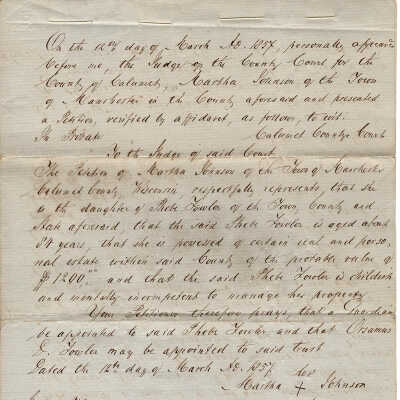 On the 12th day of March AD. 1857, personally appeared
before me, the Judge of the County Court for the
County of Calumet, Martha Johnson of the Town
of Manchester in the County aforesaid and presented
a Petition, verified by affidavit, as follows, to wit.
In Probate Calumet County Court
To the Judge of said Court
The Petition of Martha Johnson of the Town of Manchester
Calumet County, Wisconsin respectfully represents, that she
is the daughter of Phebe Fowler of the Town, County and
State aforesaid, that the said Phebe Fowler is aged about
84 years, that she is possessed of certain real and perso
nal estate within said County of the probable value of
$1200.00 and that the said Phebe Fowler is childish
and mentally incompetent to manage her property
Your Petitioner therefore prays, that a Guardian
be appointed to said Phebe Fowler and that Orsamus
D. Fowler may be appointed to said trust
Dated the 12th day of March AD. 1857.
her
Martha + Johnson